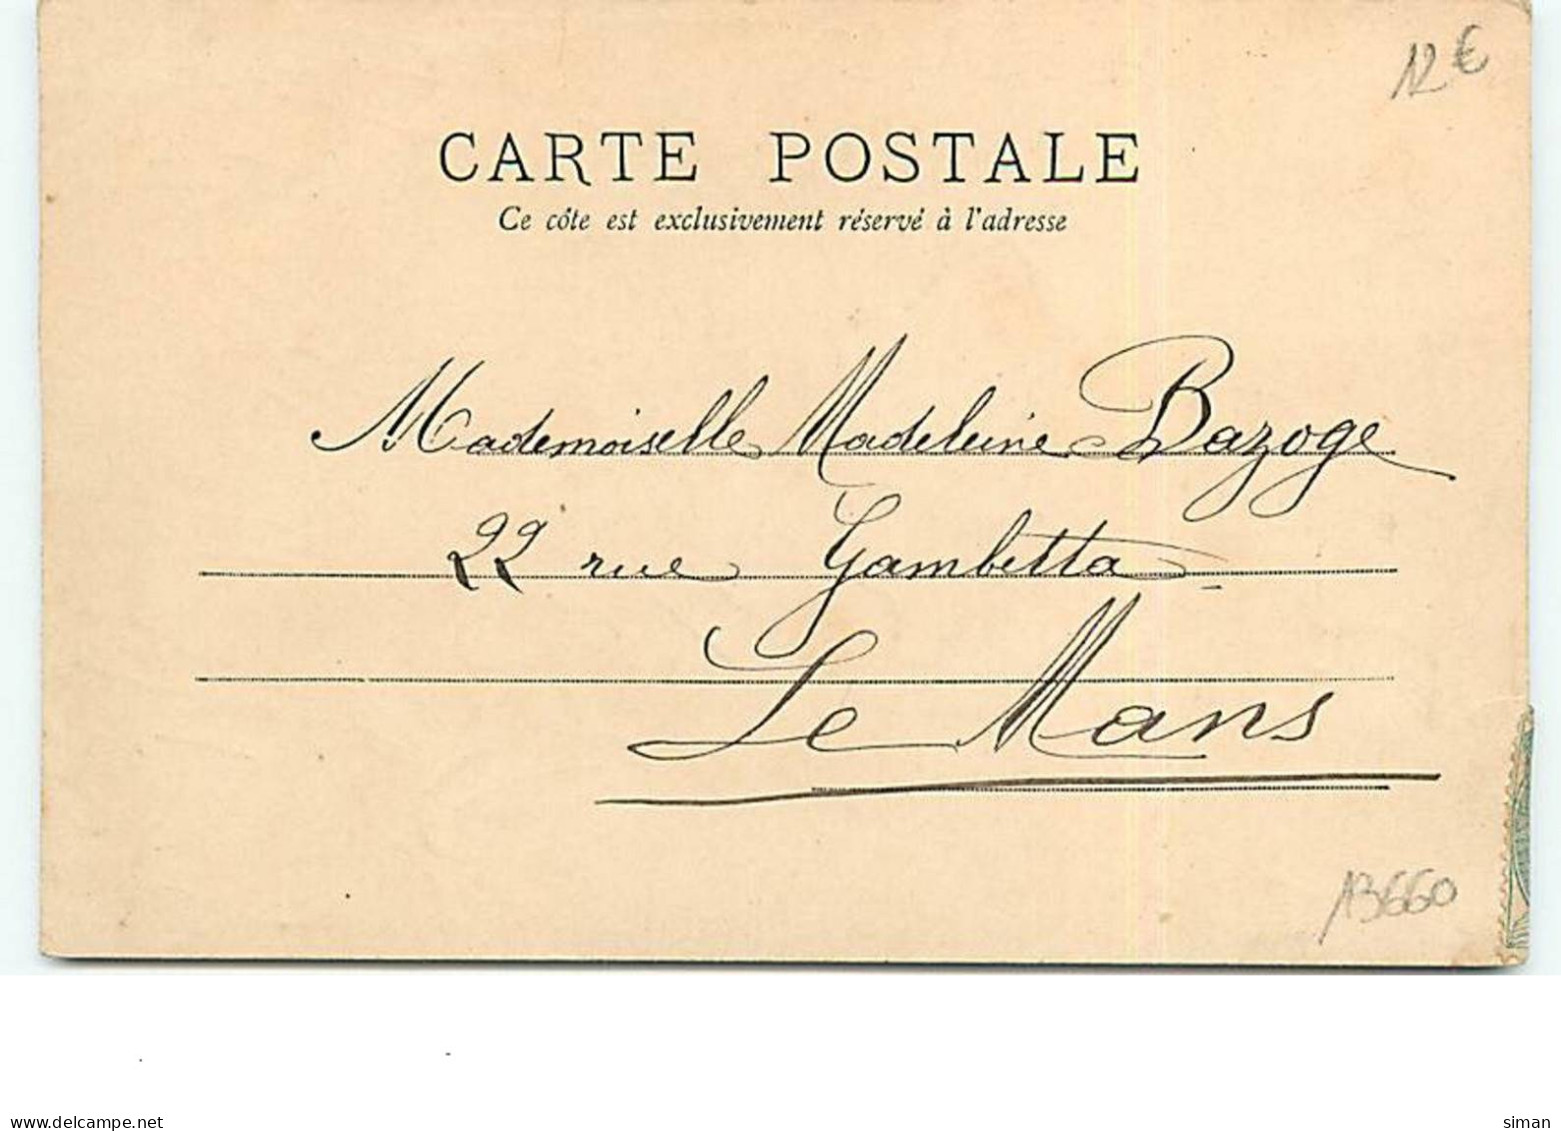 12 €
CARTE POSTALE
Ce côte est exclusivement réservé à l'adresse
Mademoiselle Madeleine Bazoge
22 rue Gambetta
Le Mans
13660
delcampe.net
siman